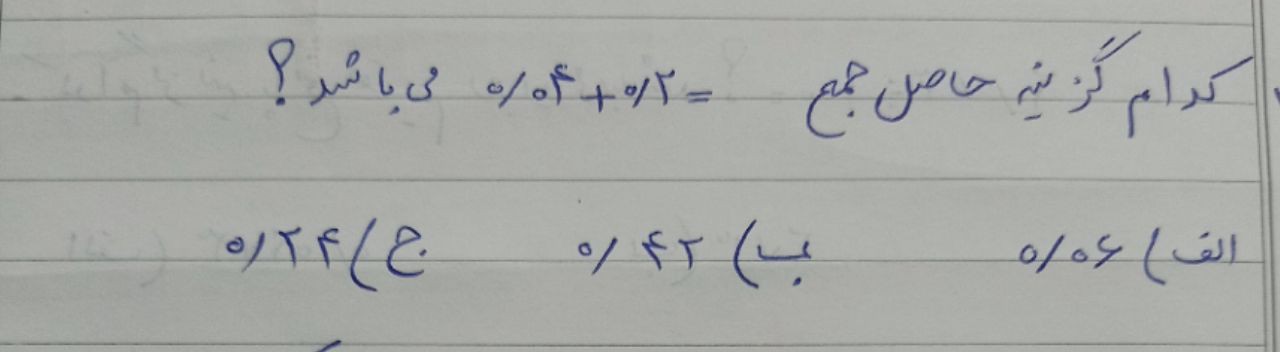 کدام گزینه حاصل جمع = ۰/۰۴ + ۰/۲ می باشد؟
الف) ۰/۰۶ ب) ۰/۴۲ ج) ۰/۲۴